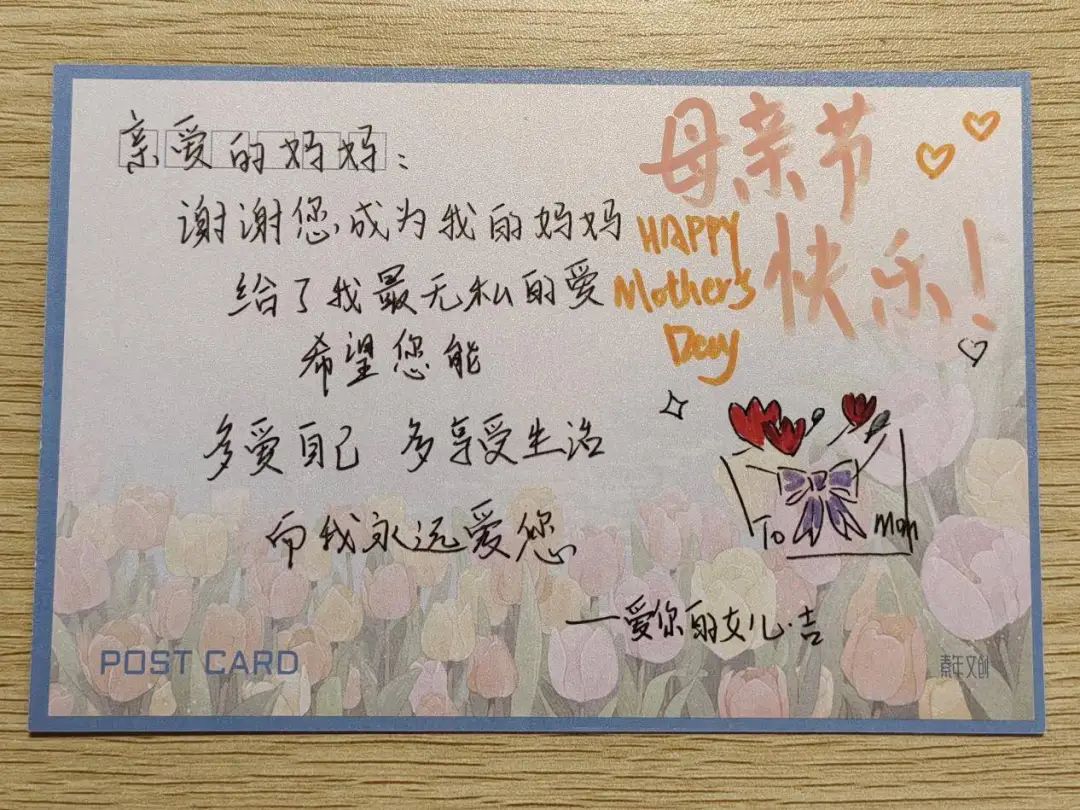 亲爱的妈妈：
谢谢您成为我的妈妈
给了我最无私的爱
希望您能
多爱自己 多享受生活
而我永远爱您
—爱你的女儿·吉
母亲节
快乐！
HAPPY
Mother's
Day
To Mom
POST CARD
青年文创